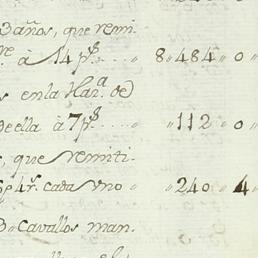 3 años, que remi-
re à 14 p.s „ 8„484„0„
s en la Har.a de
de ella à 7 p.s „ „112„0„
s, que remiti-
p.s 4 r.s cada uno „ „240„4„
3„ Cavallos man-